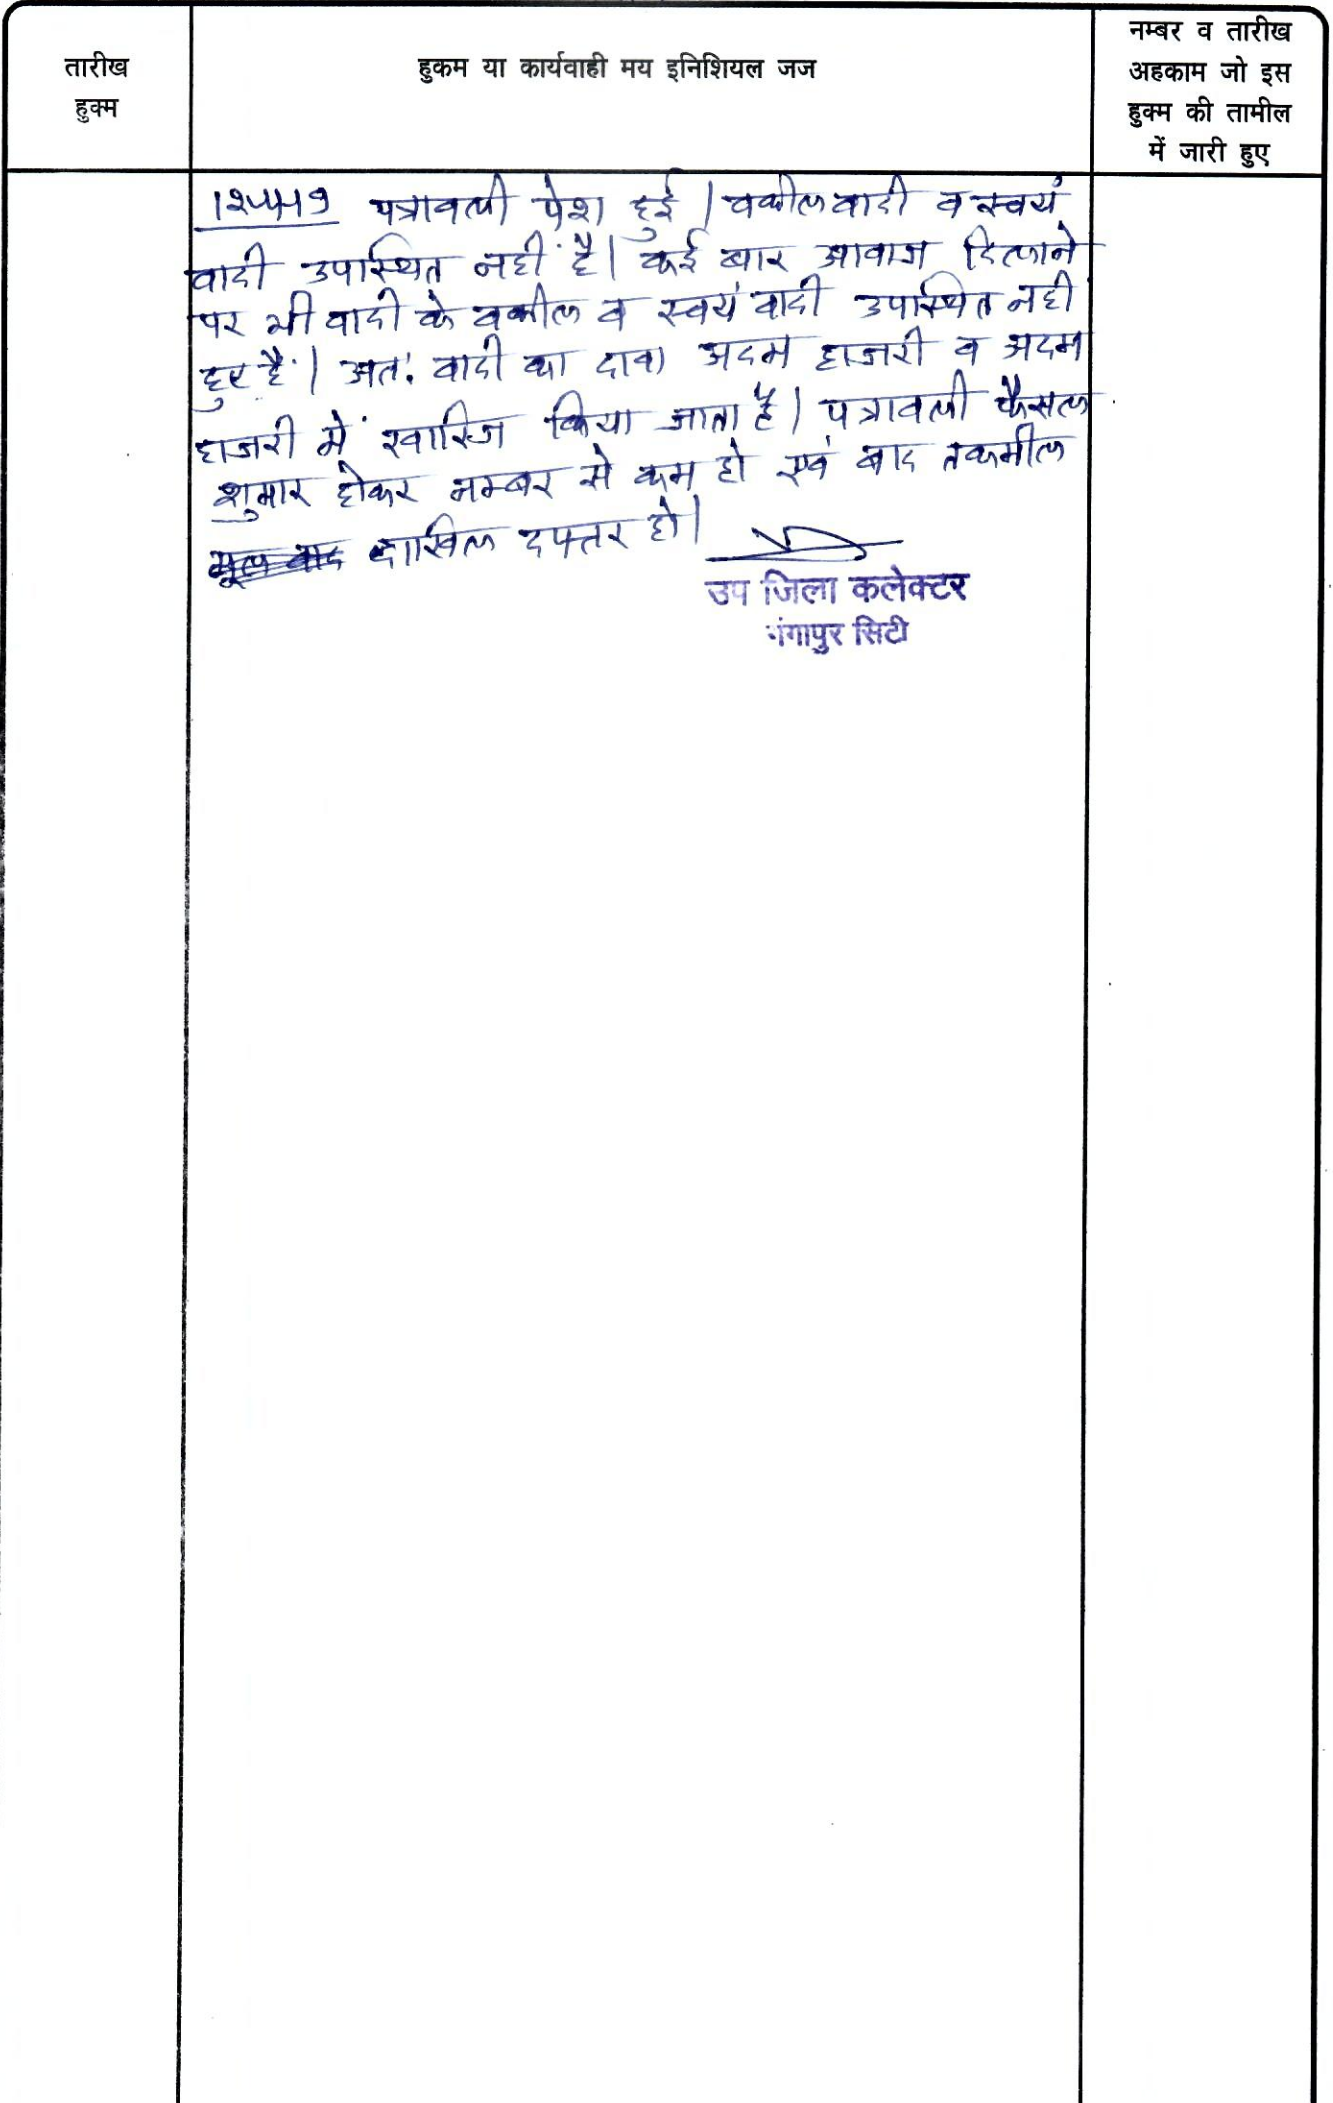 तारीख
हुक्म
हुकम या कार्यवाही मय इनिशियल जज
नम्बर व तारीख
अहकाम जो इस
हुक्म की तामील
में जारी हुए
पत्रावली पेश हुई | वकील वादी व स्वयं
वादी उपास्थित नहीं है | कई बार आवाज दिलाने
पर भी वादी के वकील व स्वयं वादी उपास्थित नही
हुए है | अतः वादी का दावा अदम हाजरी व अदम
हाजरी में खारिज किया जाता है | पत्रावली फैसल
शुमार होकर नम्बर से कम हो एवं बाद तकमील
दाखिल दफ्तर हो |
उप जिला कलेक्टर
गंगापुर सिटी